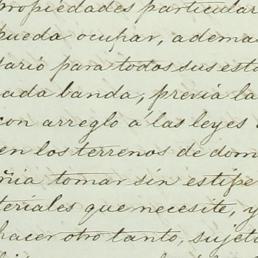 propiedades particular
pueda ocupar, adema
tario para todos sus esta
cada banda, previa la
con arreglo á las leyes
en los terrenos de dom
ñia tomar sin estipe
teriales que necesite, y
hacer otro tanto, sujeto